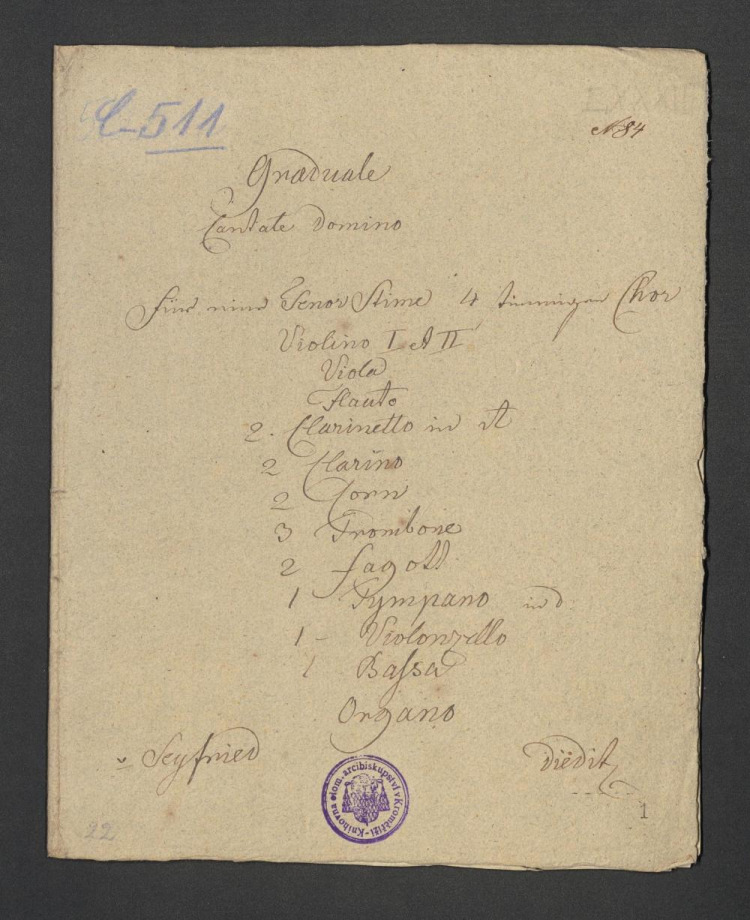 C-511
№ 84
Graduale
Cantate Domino
Für eine Tenor Stime 4 stimmigen Chor
Violino I et II
Viola
Flauto
2. Clarinetto in A
2 Clarino
2 Corn
3 Trombone
2 Fagott
1 Tympano in D
1 - Violonzello
1 Bassa
Organo
v Seyfried
Diëditz
Knihovna olom. arcibiskupství v Kroměříži
1
22